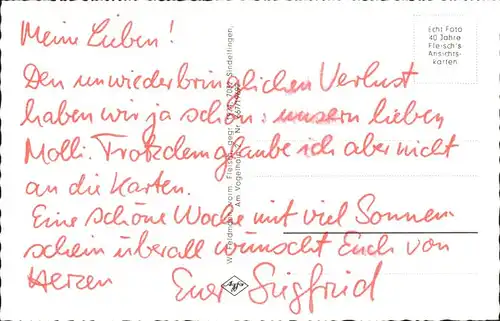 Meine Lieben!
Echt Foto
40 Jahre
Fleisch's
Ansichts-
karten
Den unwiederbringlichen Verlust
haben wir ja schon: unsern lieben
Molli. Trotzdem glaube ich aber nicht
an die Karten.
Eine schöne Woche mit viel Sonnen-
schein überall wünscht Euch von
Herzen Euer Siegfried
vorm. Fleisch, gegr. Sindelfingen,
Am Vogelholz
Agfa